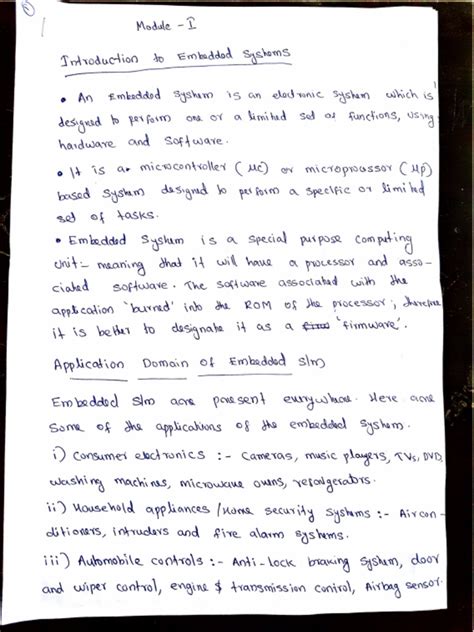 Module - I
Introduction to Embedded Systems
• An Embedded System is an electronic system which is
designed to perform one or a limited set of functions, using
hardware and software.
• It is a microcontroller (μc) or microprocessor (μp)
based system designed to perform a specific or limited
set of tasks.
• Embedded System is a special purpose computing
unit:- meaning that it will have a processor and asso-
ciated software. The software associated with the
application 'burned' into the ROM of the processor; therefore
it is better to designate it as a 'firmware'.
Application Domain of Embedded S/m
Embedded S/m are present everywhere. Here are
some of the applications of the embedded system.
i) Consumer electronics :- Cameras, music players, TVs, DVD,
washing machines, microwave ovens, refrigerators.
ii) Household appliances / Home security systems :- Aircon-
ditioners, intruders and fire alarm systems.
iii) Automobile controls :- Anti-lock braking system, door
and wiper control, engine & transmission control, Airbag sensor.